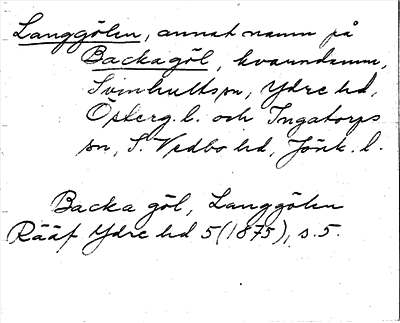 Langgölen, annat namn på
Backagöl, kvarndamm,
Svinhults sn, Ydre hd,
Österg. l. och Ingatorps
sn, S. Vedbo hd, Jönk. l.
Backa göl, Langgölen
Rääf Ydre hd 5 (1875), s. 5.